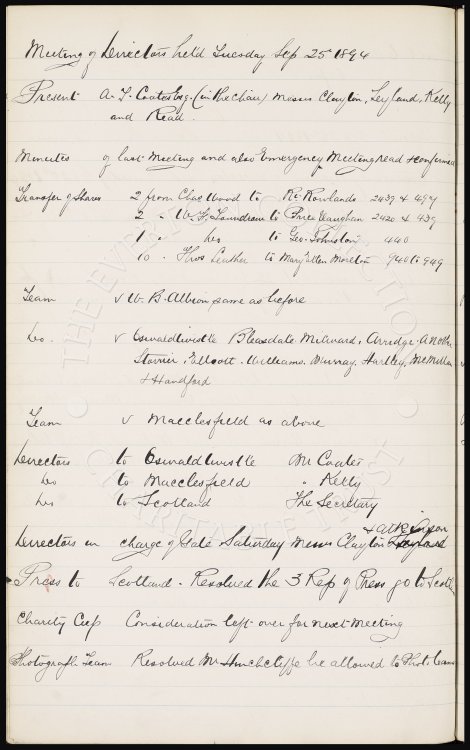 Meeting of Directors held Tuesday Sep 25 1894
Present A. T. Coates Esq. (in the chair) Messrs Clayton, Leyland, Kelly
and Read.
Minutes of last Meeting and also Emergency Meeting read & confirmed
Transfer of Shares 2 from Chas Wood to Rd Rowlands 2439 & 494
2 " W. F. Soundreau to Price Vaughan 2420 & 439
1 " Do to Geo. Johnston 440
10 " Thos Leather to Mary Ellen Morelton 940 to 949
Team v W. B. Albion same as before
Do. v Oswaldtwistle Bleasdale Milward, Arridge. A N Other
Storrier, Elliott. Williams. Murray, Hartley, McMillan
& Handford
Team v Macclesfield as above
Directors to Oswaldtwistle Mr Coates
Do to Macclesfield " Kelly
Do to Scotland The Secretary
Directors in charge of Gate Saturday Messrs Clayton & Atkinson
Press to Scotland. Resolved the 3 Rep of Press go to Scotld
Charity Cup Consideration left over for next Meeting
Photograph Team Resolved Mr Hinchcliffe be allowed to Phot. team
THE EVERTON COLLECTION
CHARITABLE TRUST